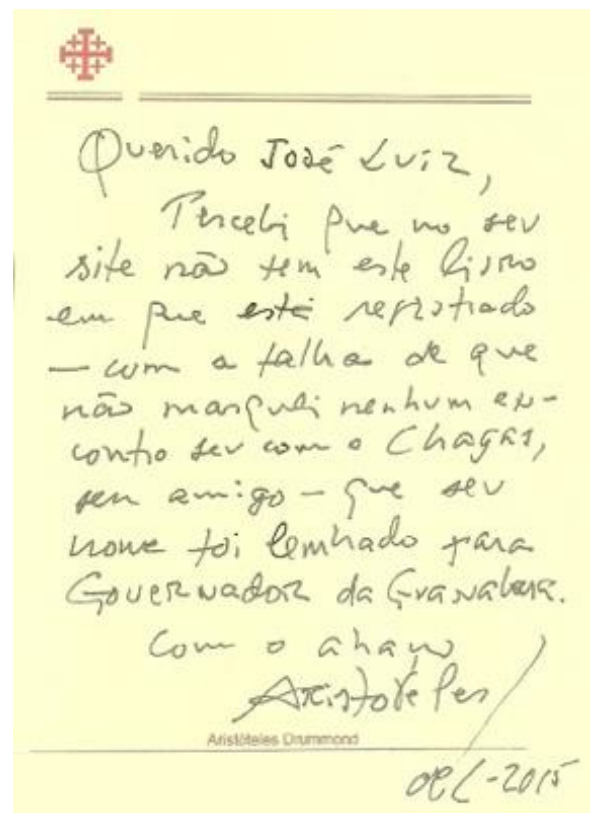 Querido José Luiz,
Percebi que no seu
site não tem este livro
em que está registrado
— com a falha de que
não marquei nenhum en-
contro seu com o Chagas,
seu amigo — que seu
nome foi lembrado para
Governador da Guanabara.
Com o abraço
Aristóteles
Aristóteles Drummond
-2015